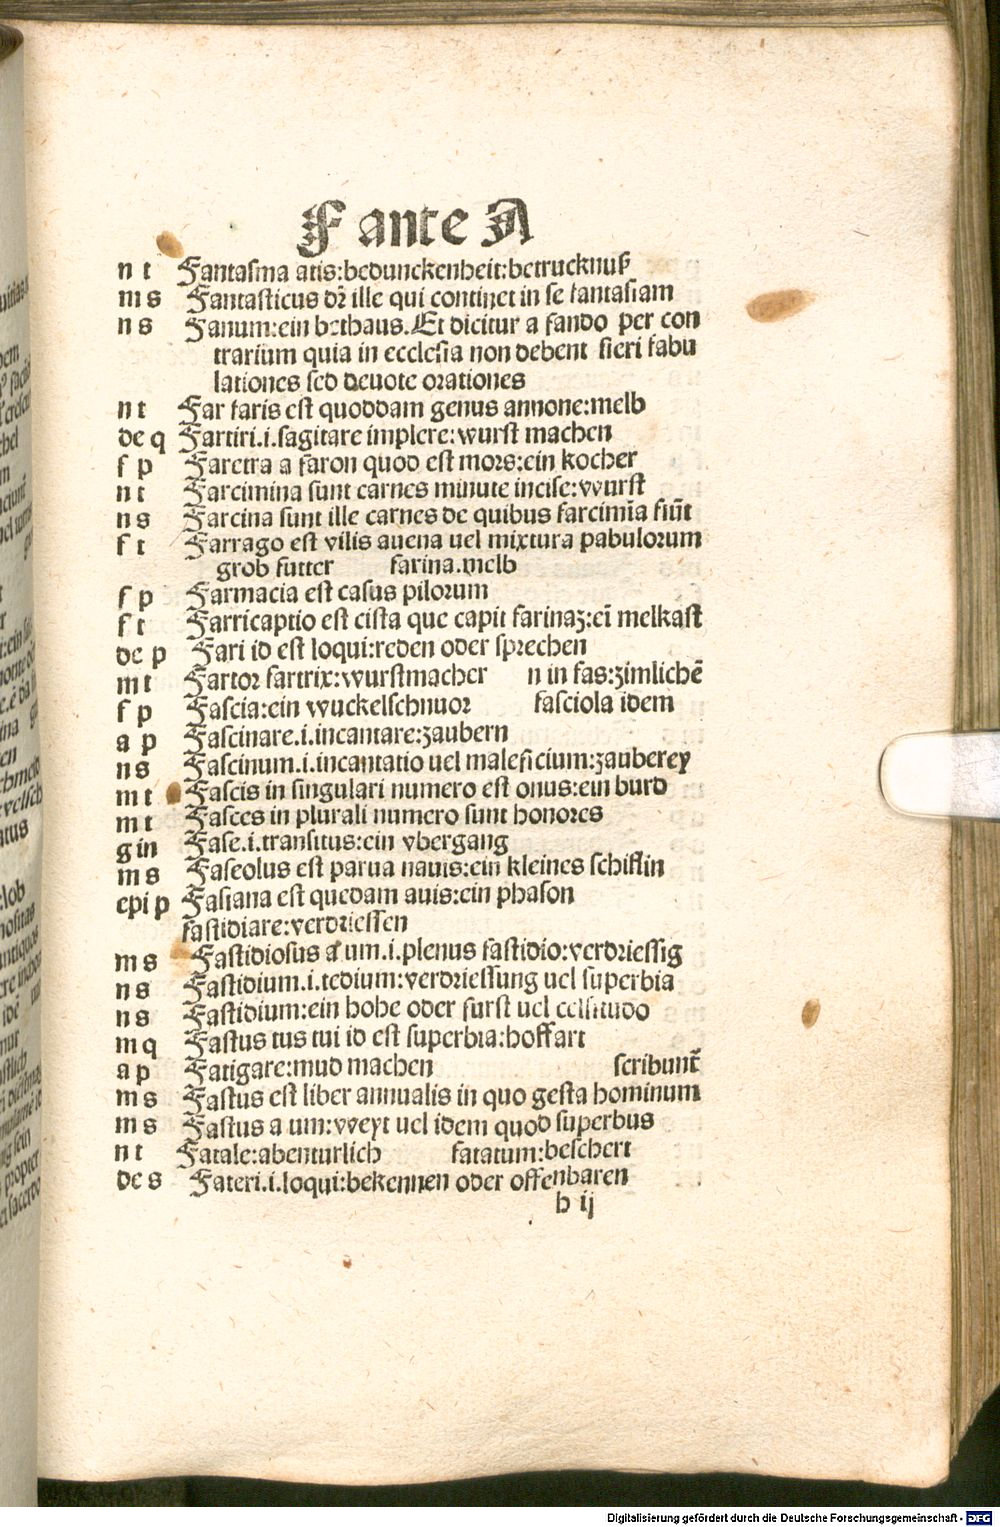 F ante A
n t Fantasma atis:bedunckenheit:betrucknuß
m s Fantasticus dr̄ ille qui continet in se fantasiam
n s Fanum:ein bethaus.Et dicitur a fando per con
trarium quia in ecclesia non debent fieri fabu
lationes sed deuote orationes
n t Far faris est quoddam genus annone:melb
de q Fartiri.i.sagitare implere:wurst machen
f p Faretra a faron quod est mors:ein kocher
n t Farcimina sunt carnes minute incise:wurst
n s Farcina sunt ille carnes de quibus farcimīa fiūt
f t Farrago est vilis auena uel mixtura pabulorum
grob futter farina.melb
f p Farmacia est casus pilorum
f t Farricaptio est cista que capit farinaz:eī melkast
de p Fari id est loqui:reden oder sprechen
m t Fartor fartrix:wurstmacher n in fas:zimlichē
f p Fascia:ein wuckelschnuor fasciola idem
a p Fascinare.i.incantare:zaubern
n s Fascinum.i.incantatio uel maleficium:zauberey
m t Fascis in singulari numero est onus:ein burd
m t Fasces in plurali numero sunt honores
g in Fase.i.transitus:ein vbergang
m s Faseolus est parua nauis:ein kleines schiflin
epi p Fasiana est quedam auis:ein phason
fastidiare:verdriessen
m s Fastidiosus a um.i.plenus fastidio:verdriessig
n s Fastidium.i.tedium:verdriessung uel superbia
n s Fastidium:ein hohe oder furst uel celsitudo
m q Fastus tus tui id est superbia:hoffart
a p Fatigare:mud machen scribunt̄
m s Fastus est liber annualis in quo gesta hominum
m s Fastus a um:weyt uel idem quod superbus
n t Fatale:abenturlich fatatum:beschert
de s Fateri.i.loqui:bekennen oder offenbaren
b ij
Digitalisierung gefördert durch die Deutsche Forschungsgemeinschaft - DFG